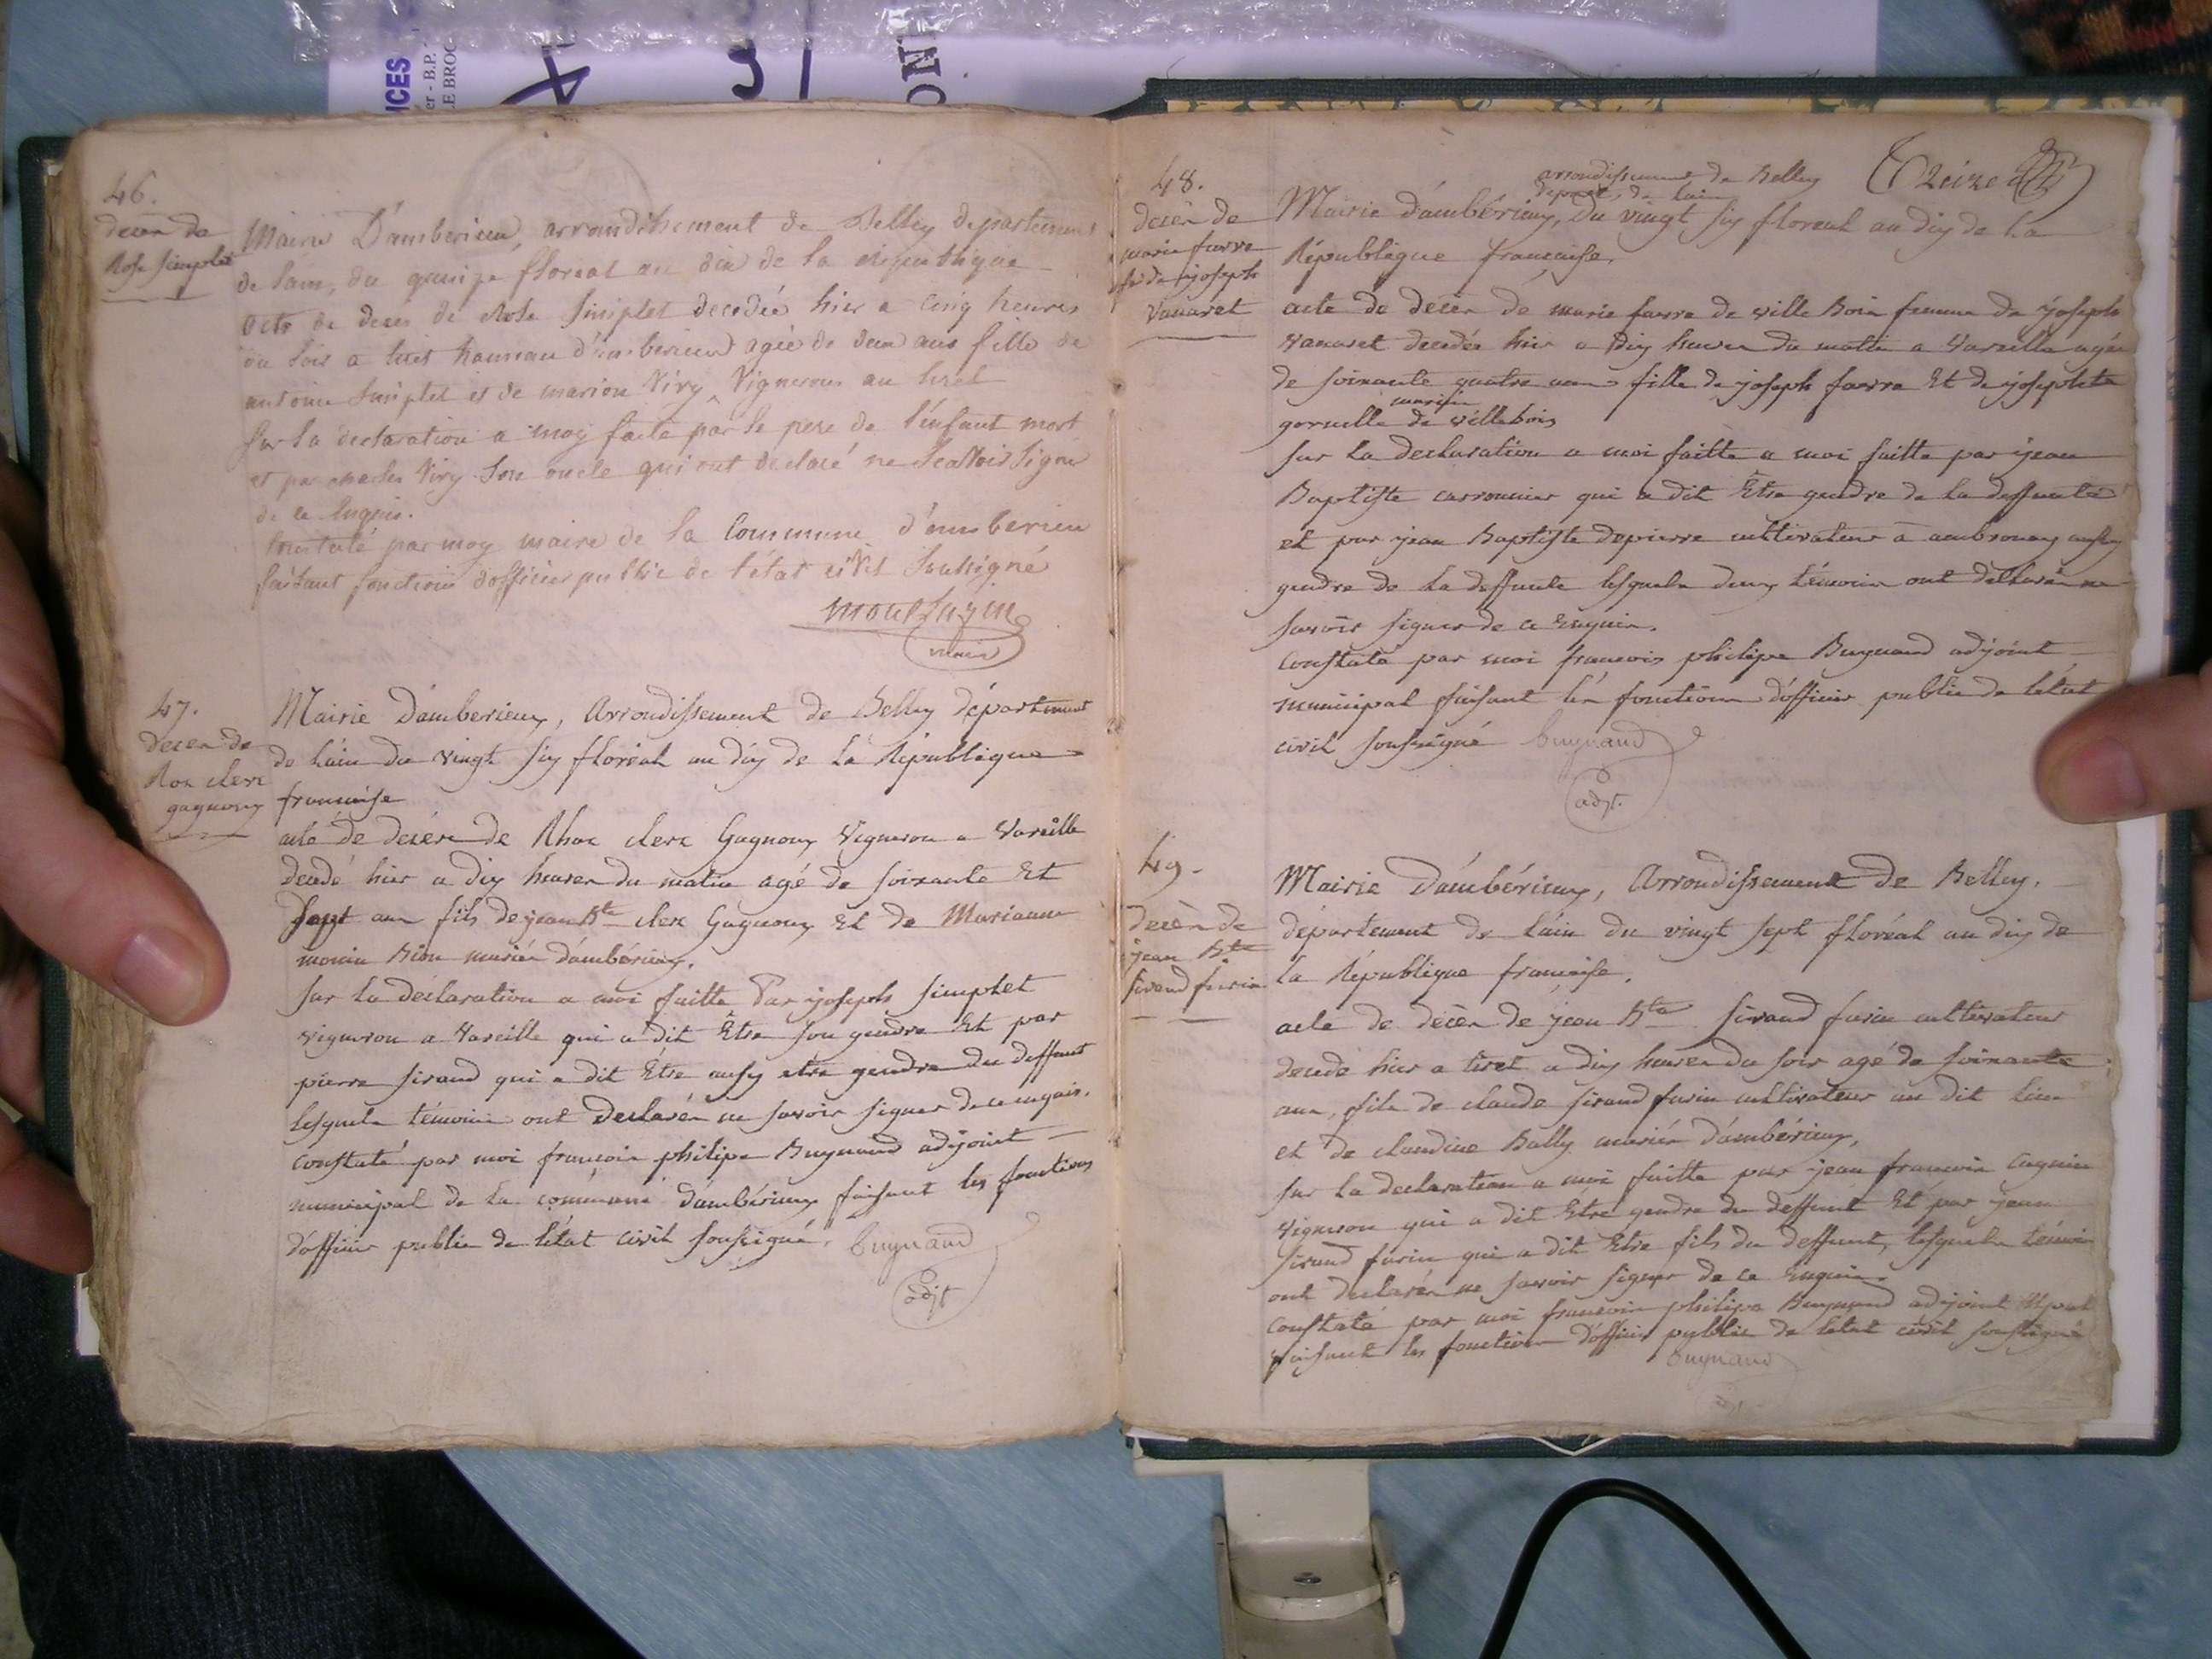 ICES
er - B.P.
LE BROC
ON
46.
decés de
Rose Simplet
Mairie D'amberieu, arrondissement de Belley departement
de l'ain, du quinze floreal an dix de la republique
acte de deces de Rose Simplet decedée hier a cinq heures
du soir a tiret hameau d'amberieu agée de deux ans fille de
antoine Simplet et de marion Viry Vignerons au tiret
sur la declaration a moy faite par le pere de l'enfant mort
et par charles Viry son oncle qui ont declaré ne scavoir signer
de ce enquis.
constaté par moy maire de la commune d'amberieu
faisant fonction d'officier public de l'état civil soussigné
maire
47.
decès de
Roc clerc
gagnoux
Mairie d'amberieux, Arrondissement de Belley département
de l'ain du vingt six floréal an dix de la République
francaise
acte de decès de Rhoc clerc Gagnoux Vigneron a Vareille
decedé hier a dix heures du matin agé de soixante Et
sept ans fils de jean Bte clerc Gagnoux Et de Marianne
monin Bion mariés d'ambérieux.
sur la declaration a moi faitte Par joseph simplet
vigneron a Vareille qui a dit Etre son gendre Et par
pierre sirand qui a dit Etre aussy etre gendre du deffunt
lesquels témoins ont declarés ne savoir signer de ce enquis.
constaté par moi francois philipe Buynand adjoint
municipal de la commune d'ambérieux faisant les fonctions
d'officier public de l'état civil soussigné. buynand
adjt
48.
decès de
marie farre
fe de joseph
Vanaret
arrondissement de Belley
depart. de lain
Treize
Mairie d'ambérieux, du vingt six floreal an dix de la
République francaise.
acte de decès de marie farre de ville Bois femme de joseph
Vanaret decedée hier a dix heures du matin a Vareille agée
de soixante quatre ans fille de joseph farre Et de josephte
mariés
goruelle de villebois
sur la declaration a moi faitte a moi faitte par jean
Baptiste carronnier qui a dit Etre gendre de la deffunte
et par jean Baptiste depierre cultivateur à ambronay aussy
gendre de la deffunte lesquels deux témoins ont declarés ne
savoir signer de ce Enquis.
constaté par moi francois philipe Buynand adjoint
municipal faisant les fonctions d'officier public de l'état
civil soussigné buynand
adjt.
49.
decès de
jean Bte
sirand furin
Mairie d'ambérieux, Arrondissement de Belley.
département de l'ain du vingt sept floréal an dix de
la République francaise.
acte de decès de jean Bte sirand furin cultivateur
decedé hier a tiret a dix heures du soir agé de soixante
ans, fils de claude sirand furin cultivateur au dit lieu
et de claudine Bally mariés d'ambérieux,
sur la declaration a moi faitte par jean francois cagnin
vigneron qui a dit Etre gendre du deffunt Et par jean
sirand furin qui a dit Etre fils du deffunt, lesquels témoins
ont declarés ne savoir signer de ce Enquis.
constaté par moi francois philipe Buynand adjoint Mpal
faisant les fonctions d'officier public de l'état civil soussigné
buynand